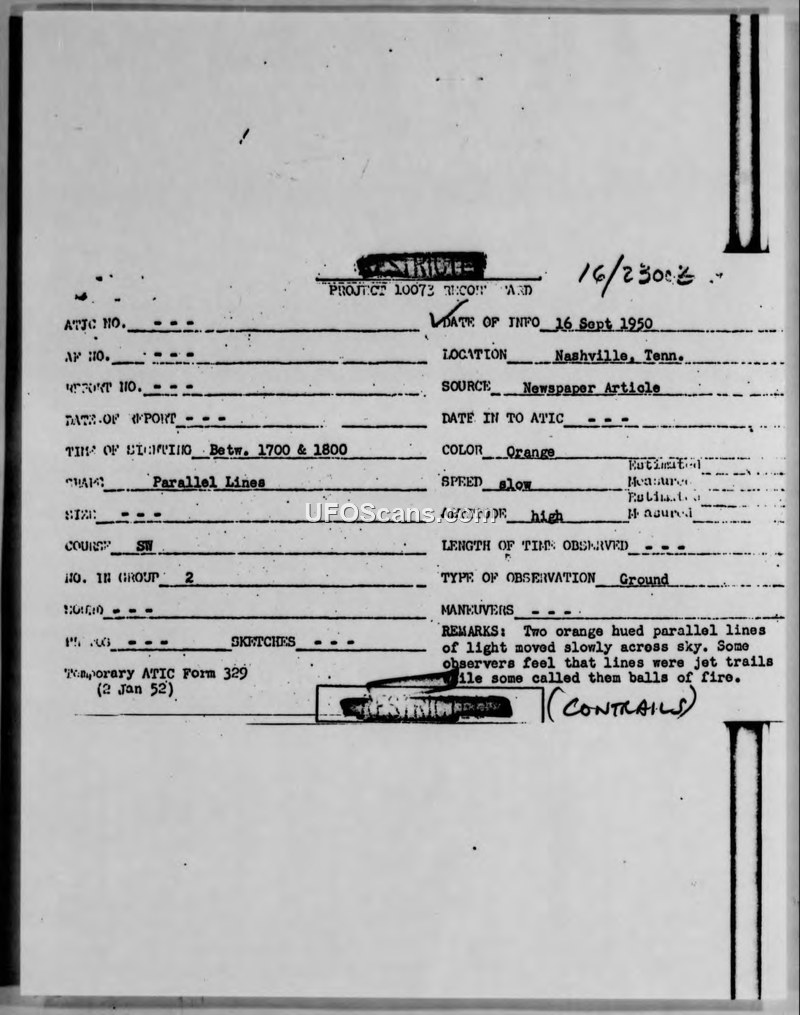 RESTRICTED
16/2300Z
PROJECT 10073 RECORD CARD
ATIC NO. - - -
DATE OF INFO 16 Sept 1950
AF NO. - - -
LOCATION Nashville, Tenn.
REPORT NO. - - -
SOURCE Newspaper Article
DATE OF REPORT - - -
DATE IN TO ATIC - - -
TIME OF SIGHTING Betw. 1700 & 1800
COLOR Orange
SHAPE Parallel Lines
SPEED slow
Estimated
Measured
SIZE - - -
ALTITUDE high
Estimated
Measured
UFOScans.com
COURSE SW
LENGTH OF TIME OBSERVED - - -
NO. IN GROUP 2
TYPE OF OBSERVATION Ground
SOUND - - -
MANEUVERS - - - -
PHOTOS - - -
SKETCHES - - -
REMARKS: Two orange hued parallel lines
of light moved slowly across sky. Some
observers feel that lines were jet trails
while some called them balls of fire.
Temporary ATIC Form 329
(2 Jan 52)
RESTRICTED
(CONTRAILS)